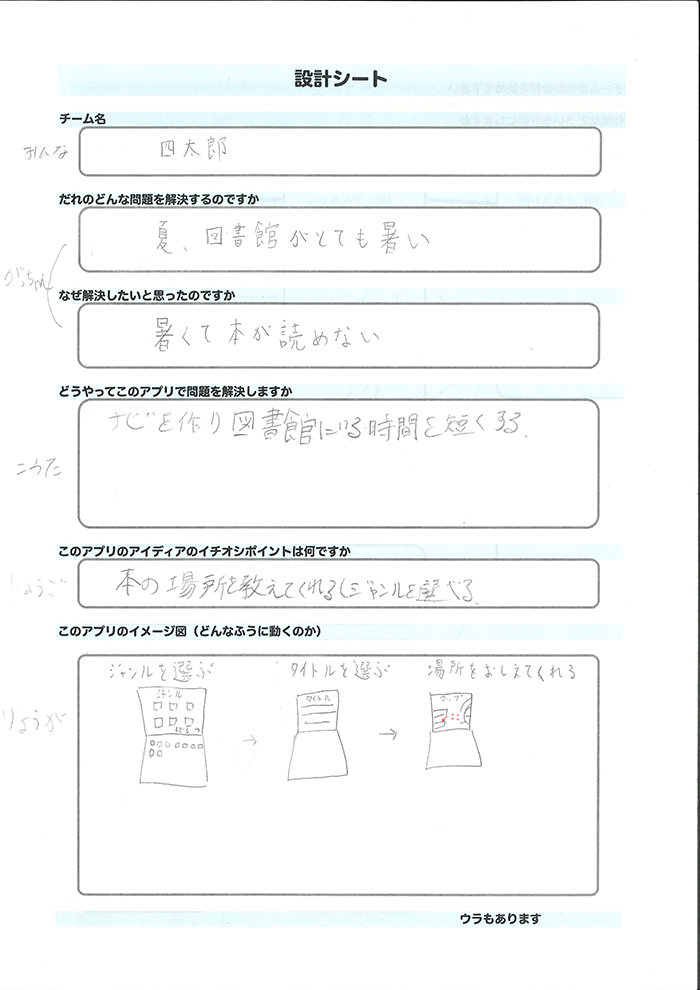 設計シート
チーム名
みんな
四太郎
だれのどんな問題を解決するのですか
夏、図書館がとても暑い
がっちゃん
なぜ解決したいと思ったのですか
暑くて本が読めない
どうやってこのアプリで問題を解決しますか
ナビを作り図書館にいる時間を短くする.
こうた
このアプリのアイディアのイチオシポイントは何ですか
しょうご
本の場所を教えてくれるしジャンルを選べる.
このアプリのイメージ図（どんなふうに動くのか）
りょうが
ジャンルを選ぶ
タイトルを選ぶ
場所をおしえてくれる
ジャンル
タイトル
マップ
ここ
ウラもあります